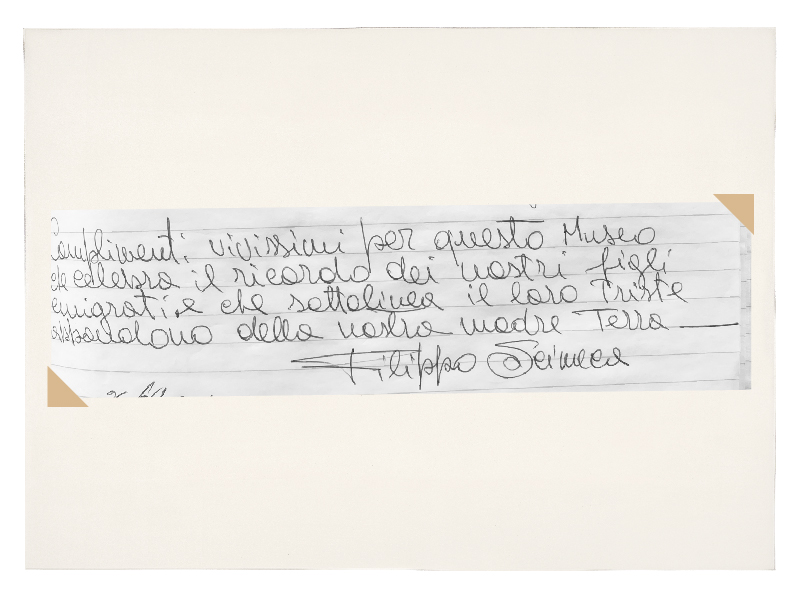 complimenti vivissimi per questo Museo
che celebra il ricordo dei nostri figli
emigrati, e che sottolinea il loro Triste
abbandono della nostra madre Terra —
Filippo Scimeca